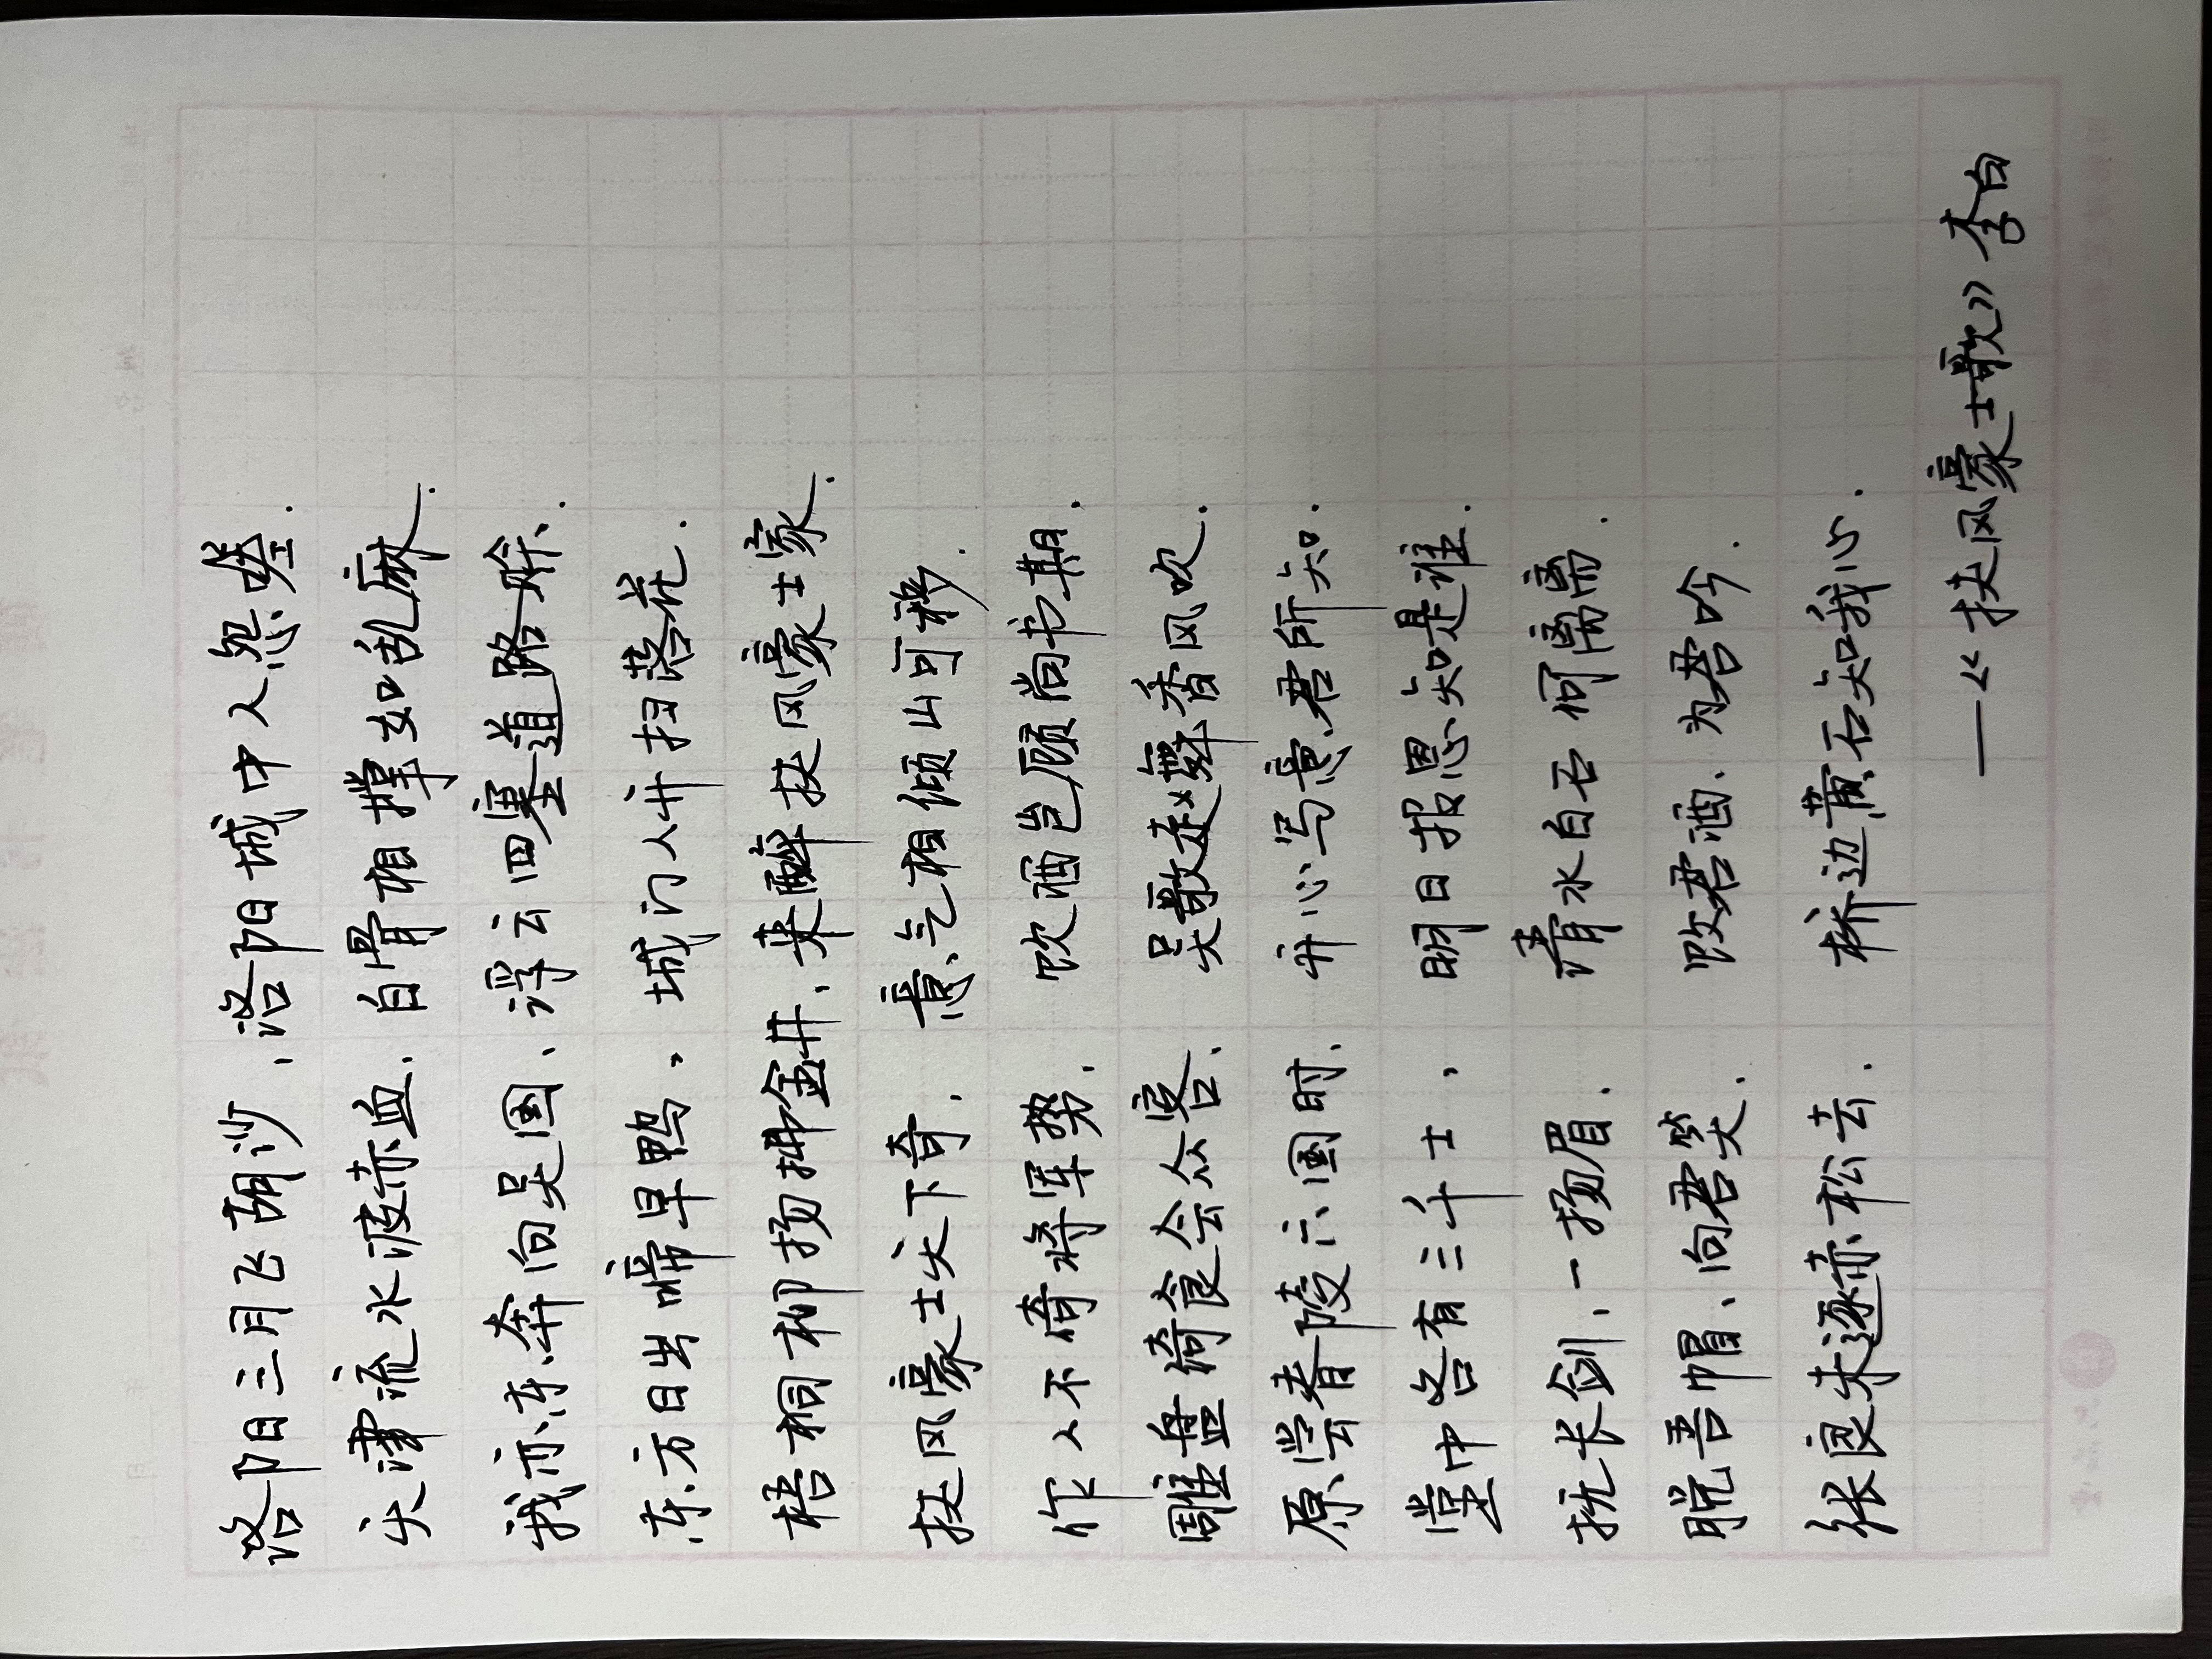 洛阳三月飞胡沙，洛阳城中人怨嗟.
天津流水波赤血，白骨相撑如乱麻.
我亦东奔向吴国、浮云四塞道路赊.
东方日出啼早鸦，城门人开扫落花.
梧桐杨柳拂金井、来醉扶风豪士家.
扶风豪士天下奇，意气相倾山可移.
作人不倚将军势，饮酒岂顾尚书期.
雕盘绮食会众客、吴歌赵舞香风吹.
原尝春陵六国时、开心写意君所知.
堂中各有三千士，明日报恩知是谁.
抚长剑、一扬眉. 清水白石何离离.
脱吾帽、向君笑. 饮君酒、为君吟.
张良未逐赤松去. 桥边黄石知我心.
——《扶风豪士歌》李白